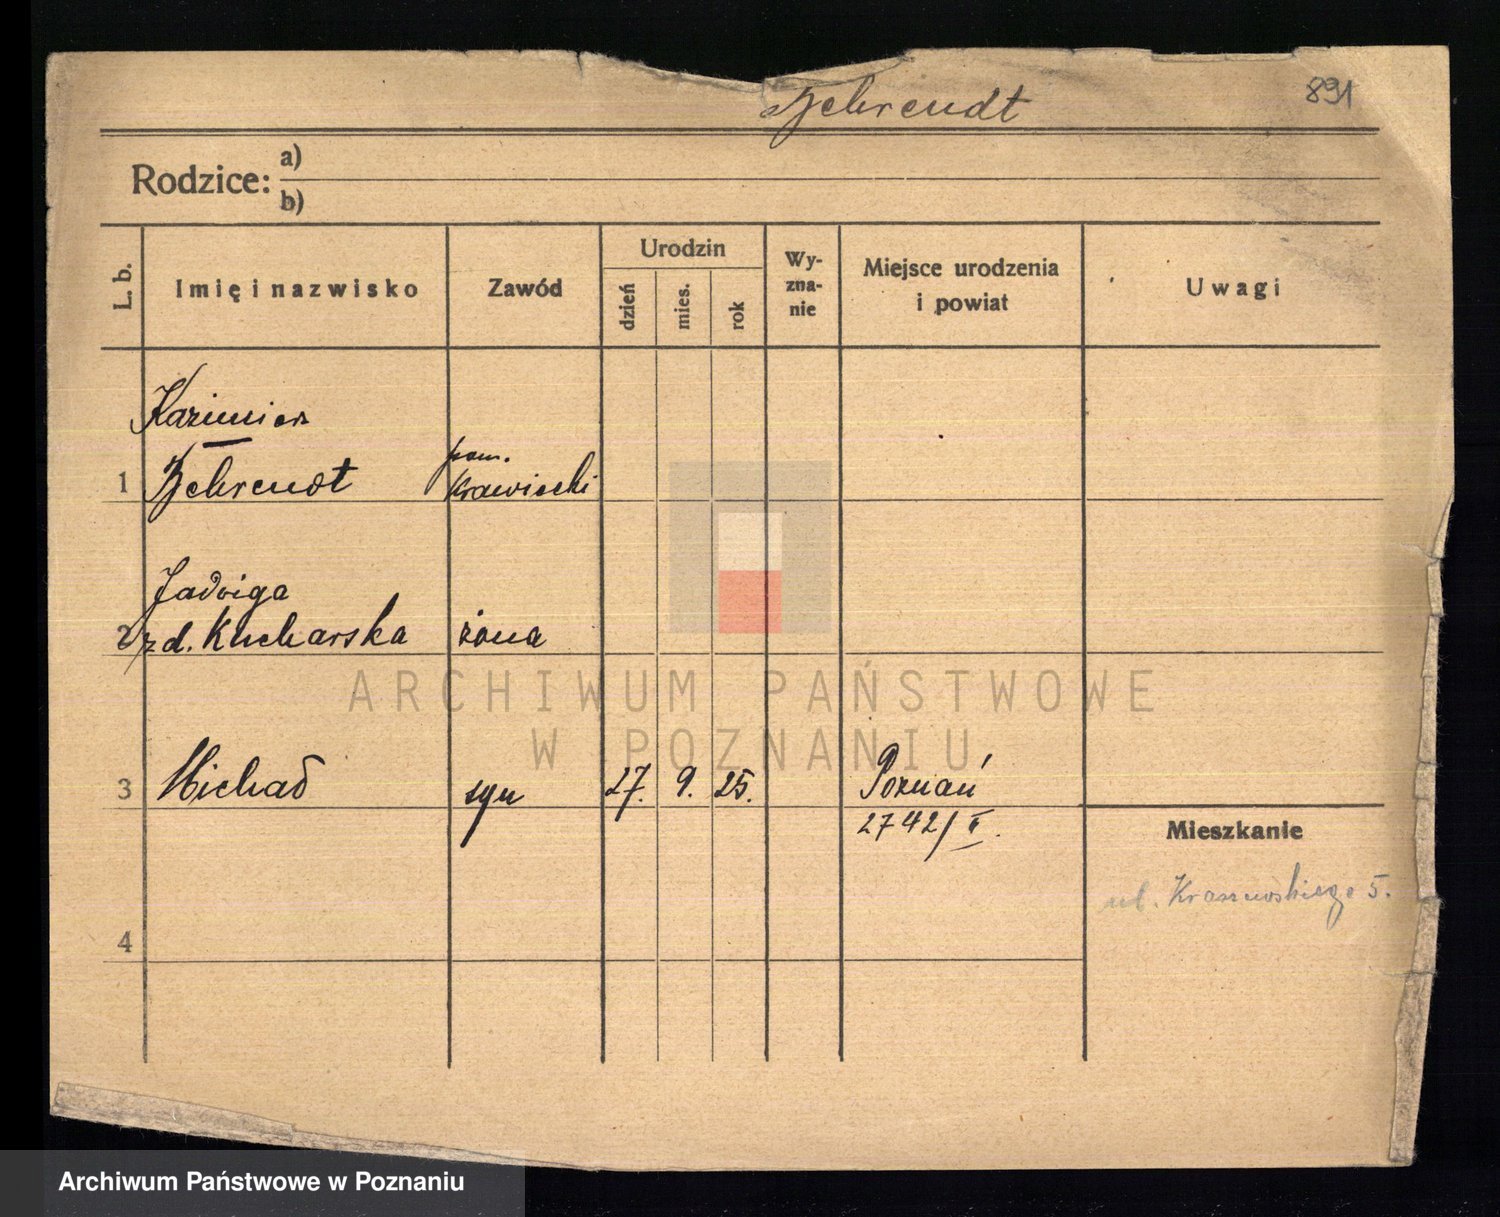 Behrendt
891
Rodzice:
a)
b)
L. b.
Imię i nazwisko
Zawód
Urodzin
dzień
mies.
rok
Wy-
zna-
nie
Miejsce urodzenia
i powiat
Uwagi
Kazimierz
1 Behrendt
pom.
krawiecki
Jadwiga
2 zd. Kucharska żona
3 Michał syn 27. 9. 25. Poznań
2742/II.
Mieszkanie
ul. Kraszewskiego 5.
4
ARCHIWUM PAŃSTWOWE
W POZNANIU
Archiwum Państwowe w Poznaniu